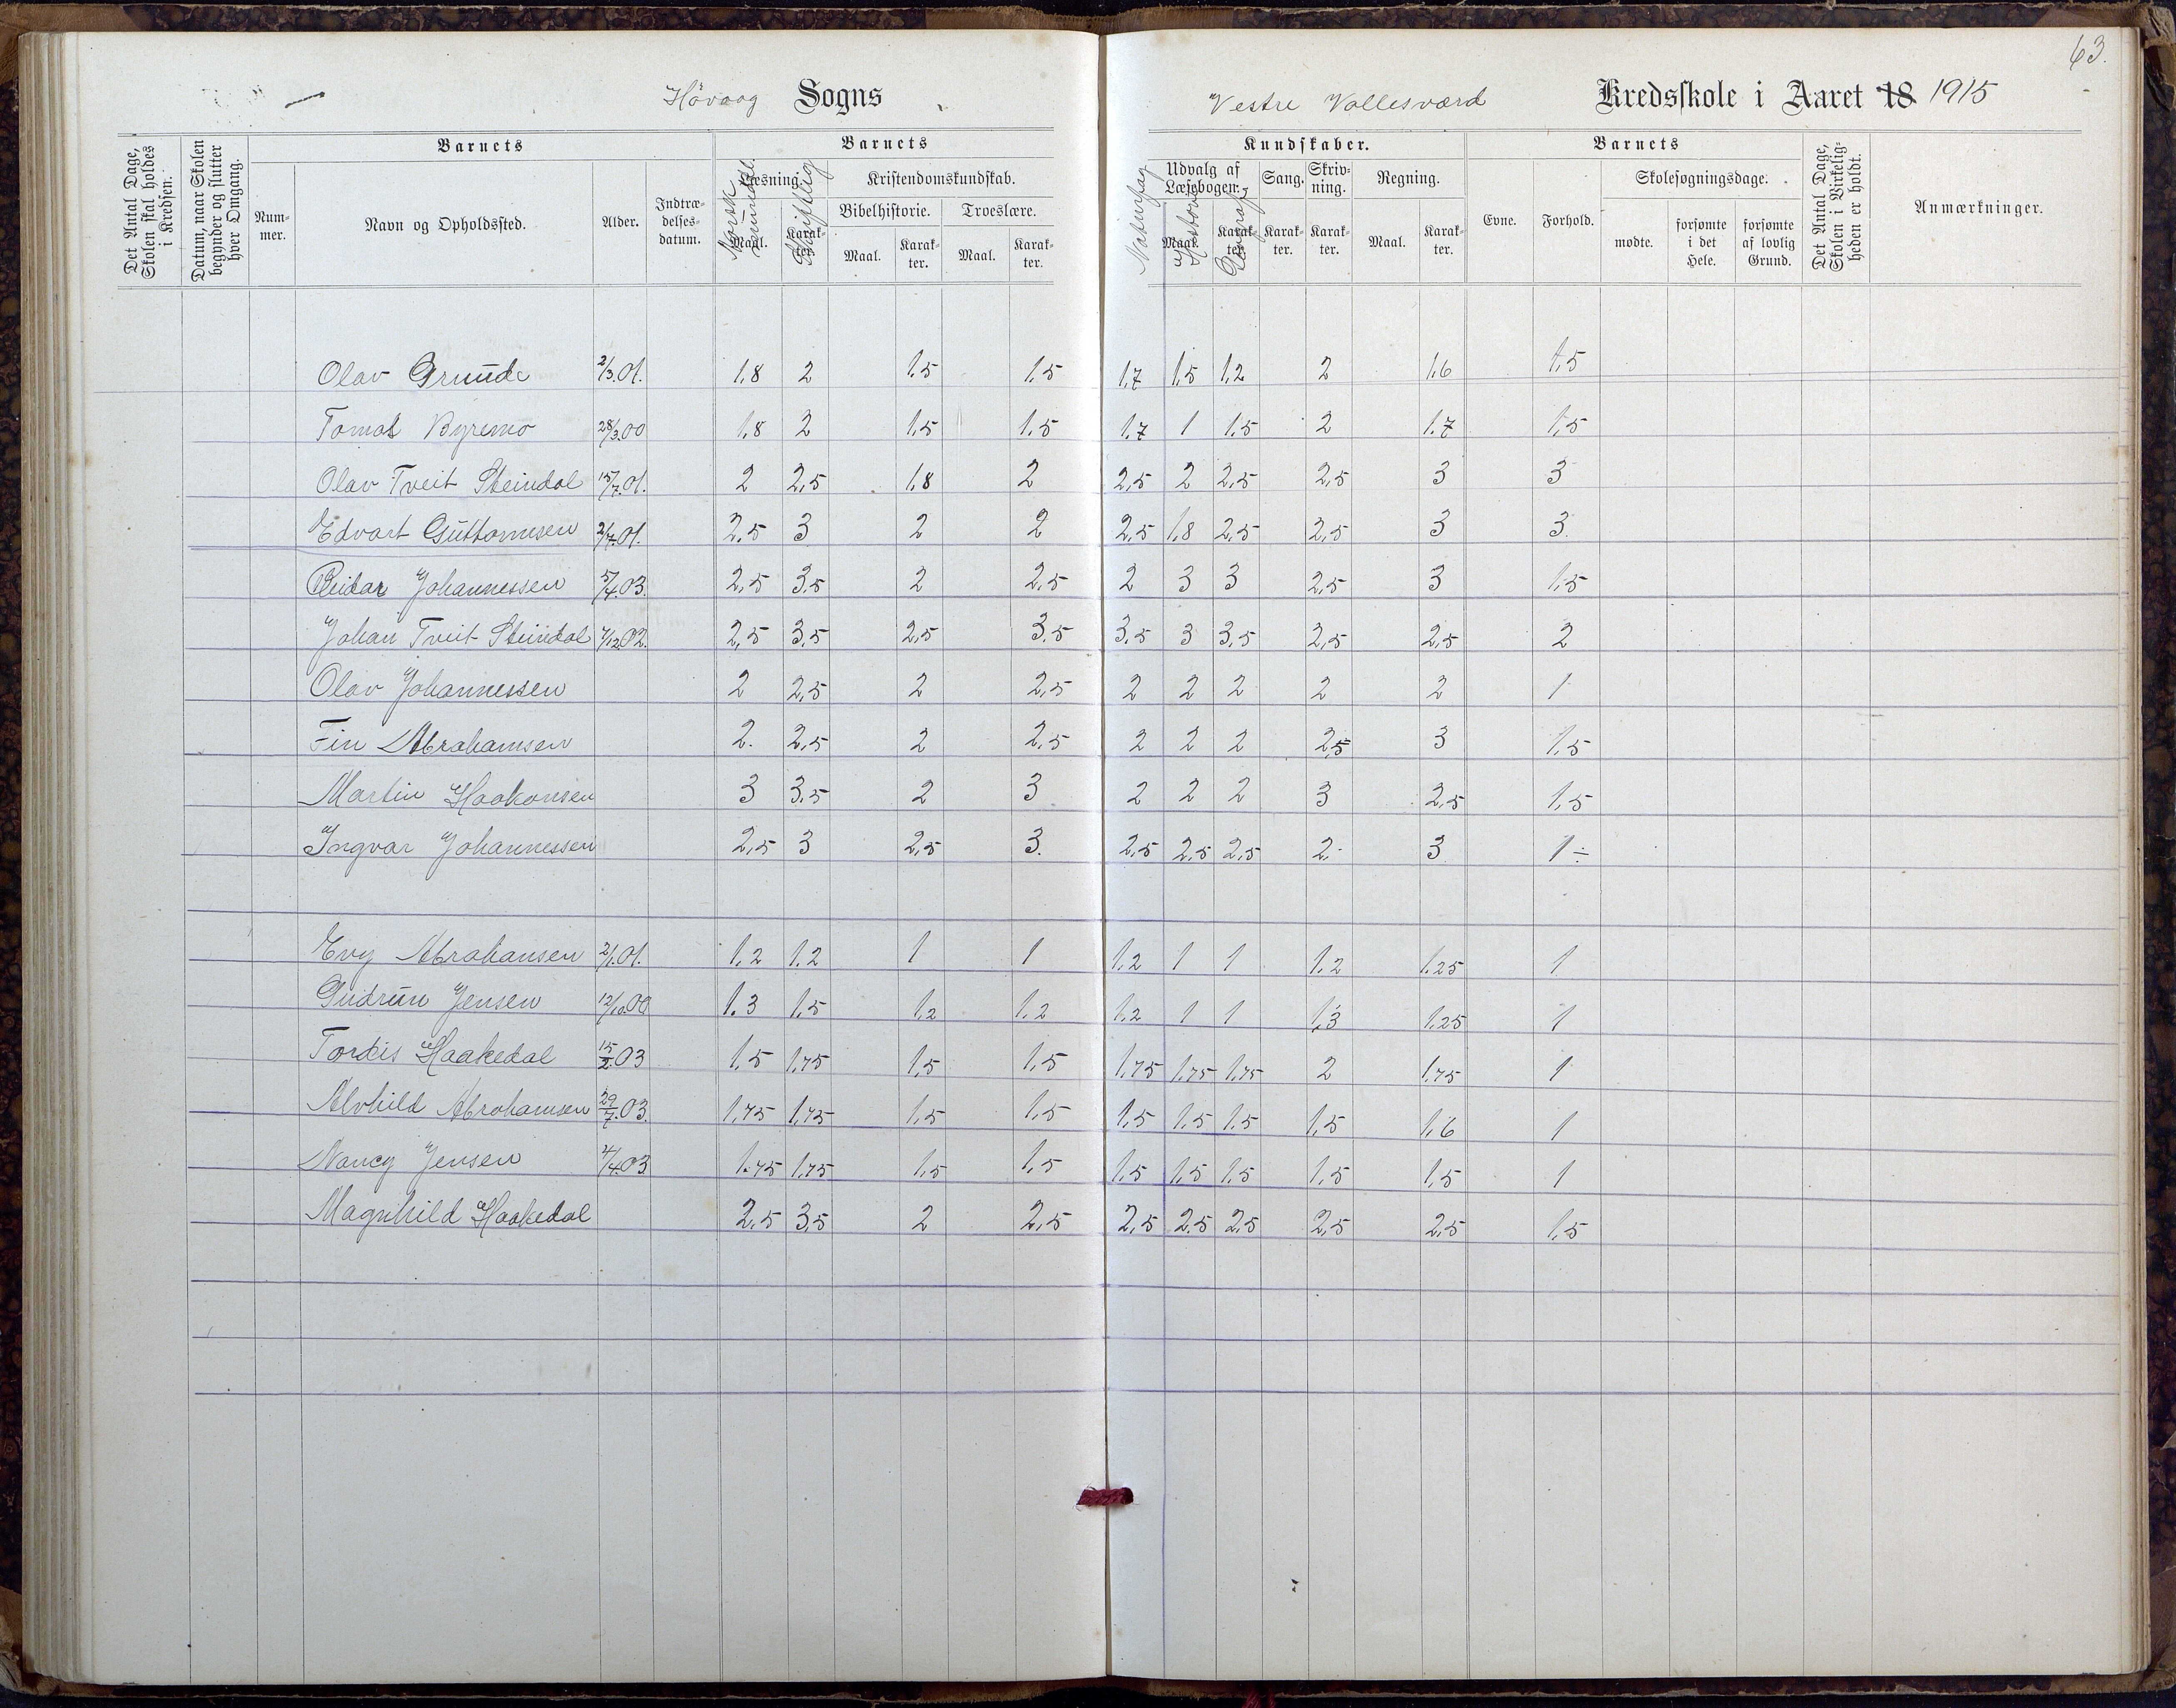 63.
Høvaag Sogns Vestre Vallesværd Kredsskole i Aaret 18 1915
Det Antal Dage, Skolen skal holdes i Kredsen.
Datum, naar Skolen begynder og slutter hver Omgang.
Barnets
Nummer.
Navn og Opholdssted.
Alder.
Indtrædelsesdatum.
Barnets
Læsning.
Maal. Karakter.
Norsk mundtl.
Skriftlig
Kristendomskundskab.
Bibelhistorie. Troeslære.
Maal. Karakter. Maal. Karakter.
Kundskaber.
Naturfag
Udvalg af Læsebogen.
Maal. Karakter.
Historie
Geografi
Sang. Karakter.
Skrivning. Karakter.
Regning.
Maal. Karakter.
Barnets
Evne. Forhold.
Skolesøgningsdage.
mødte. forsømte i det Hele. forsømte af lovlig Grund.
Det Antal Dage, Skolen i Virkeligheden er holdt.
Anmærkninger.
Olav Grunde 2/3.01. 1,8 2 1,5 1,5 1,7 1,5 1,2 2 1,6 1,5
Tomas Byremo 28/3.00 1,8 2 1,5 1,5 1,7 1 1,5 2 1,7 1,5
Olav Tveit Steindal 15/7.01. 2 2,5 1,8 2 2,5 2 2,5 2,5 3 3
Edvart Guttormsen 2/7.01. 2,5 3 2 2 2,5 1,8 2,5 2,5 3 3
Reidar Johannessen 5/4.03. 2,5 3,5 2 2,5 2 3 3 2,5 3 1,5
Johan Tveit Steindal /12.02. 2,5 3,5 2,5 3,5 3,5 3 3,5 2,5 2,5 2
Olav Johannessen 2 2,5 2 2,5 2 2 2 2 2 1
Fin Abrahamsen 2. 2,5 2 2,5 2 2 2 2,5 3 1,5
Martin Haakonsen 3 3,5 2 3 2 2 2 3 2,5 1,5
Ingvar Johannessen 2,5 3 2,5 3. 2,5 2,5 2,5 2. 3 1 ÷
Evy Abrahansen 2/1.01. 1,2 1,2 1 1 1,2 1 1 1,2 1,25 1
Gudrun Jensen 12/10.00 1.3 1,5 1,2 1,2 1,2 1 1 1,3 1,25 1
Tordis Haakedal 15/2.03 1,5 1,75 1,5 1,5 1,75 1,75 1,75 2 1,75 1
Alvhild Abrahamsen 29/7.03. 1,75 1,75 1,5 1,5 1,5 1,5 1,5 1,5 1,6 1
Nancy Jensen /4.03 1.75 1,75 1,5 1,5 1,5 1,5 1,5 1,5 1,5 1
Magnhild Haakedal 2,5 3,5 2 2,5 2,5 2,5 2,5 2,5 2,5 1,5